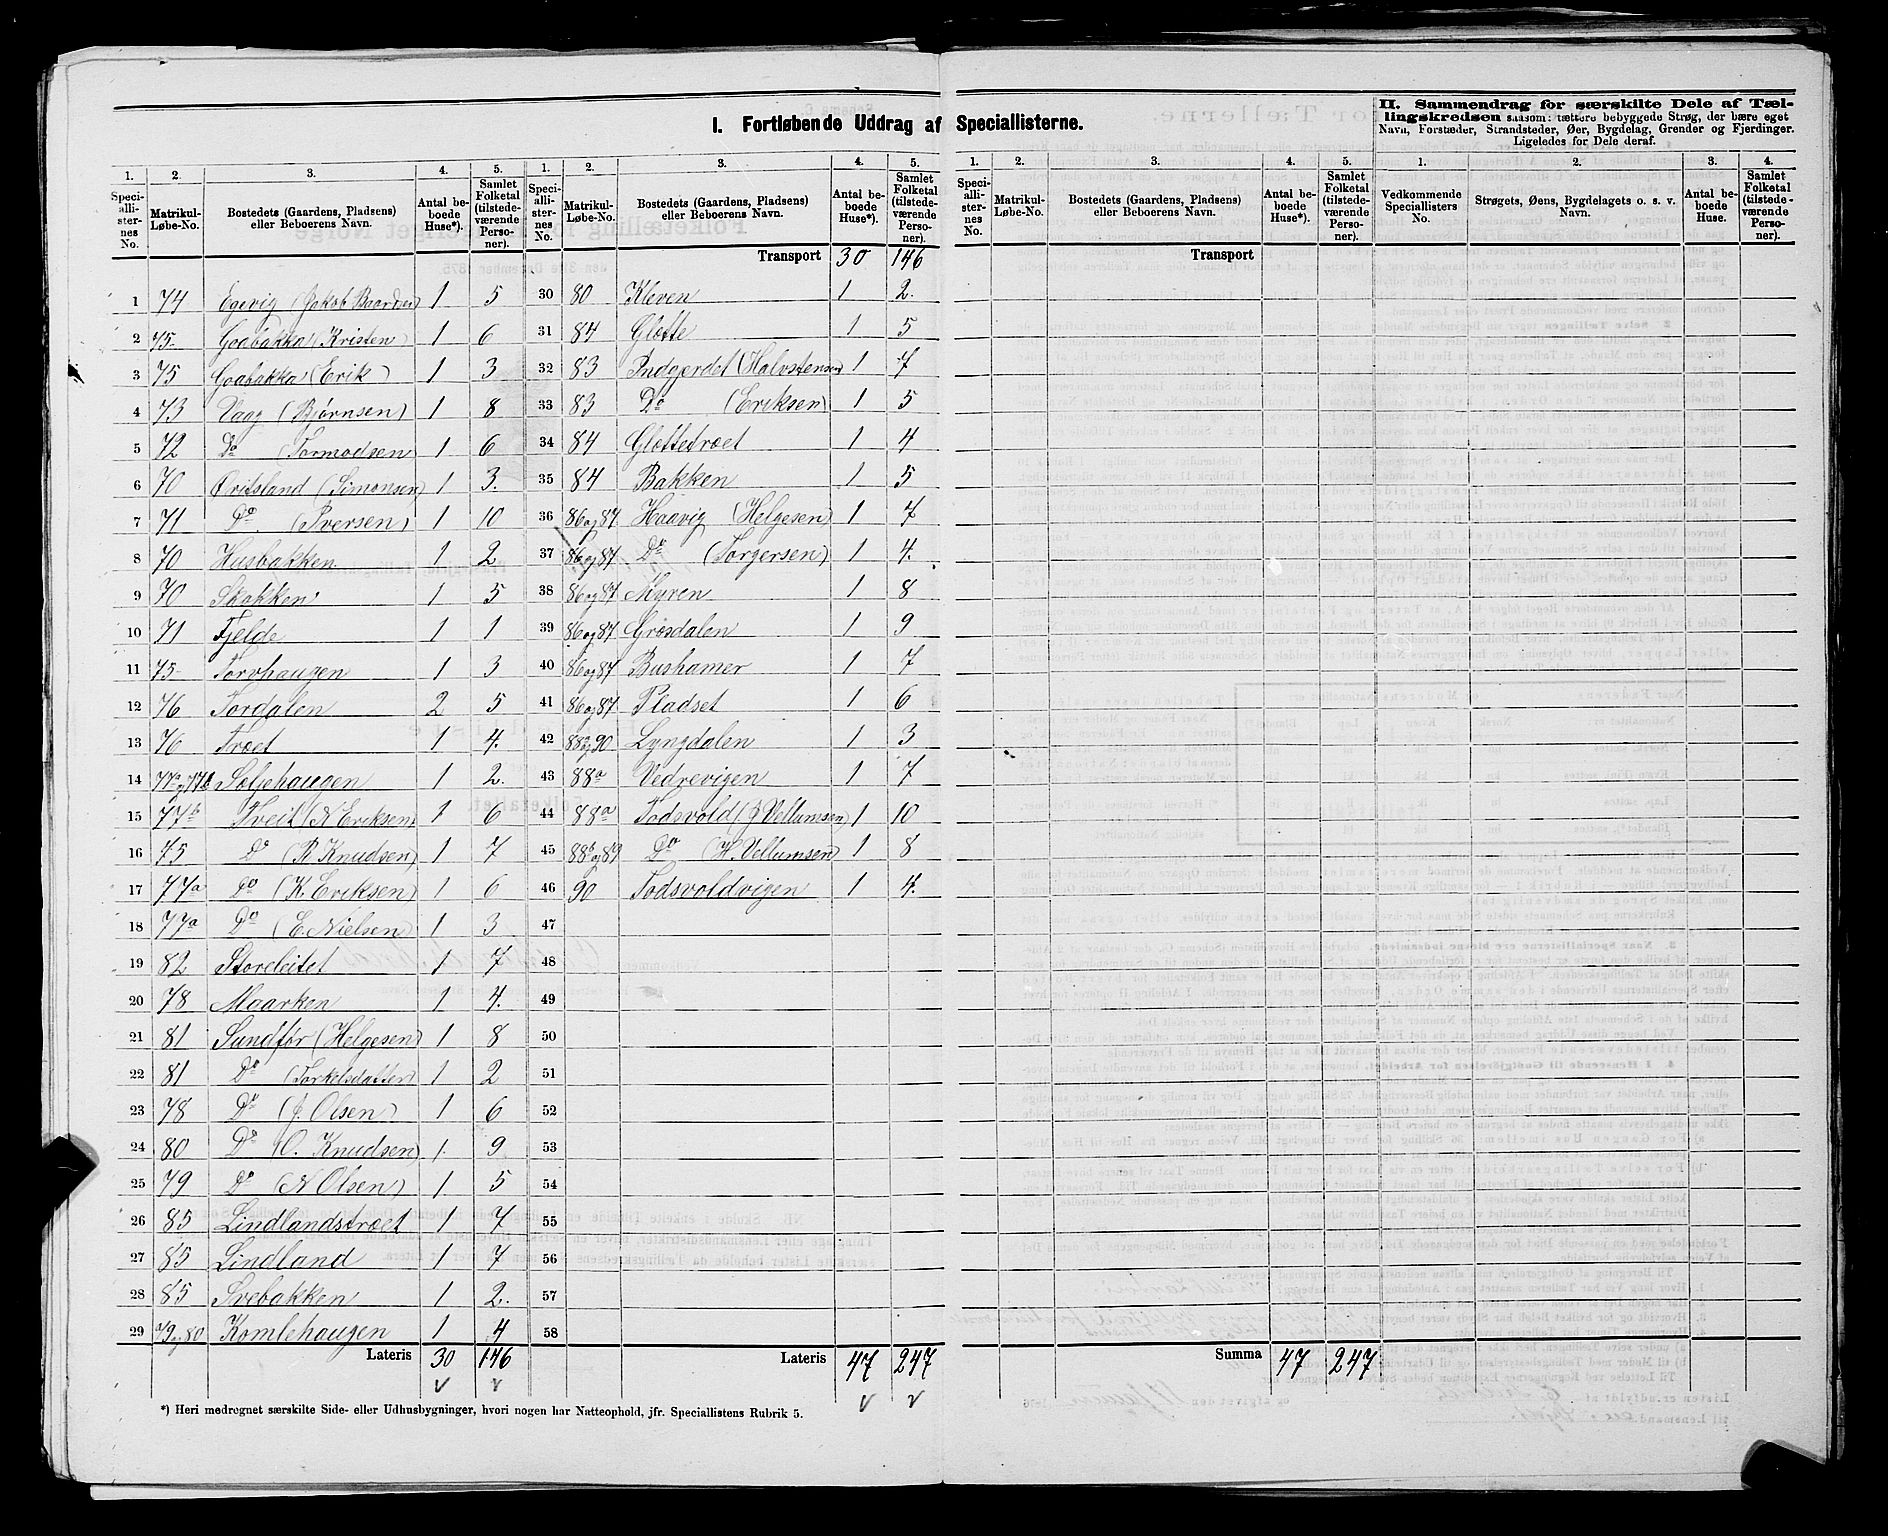 I. Fortløbende Uddrag af Speciallisterne.
1. 2. 3. 4. 5.
Speciallisternes No. | Matrikul-Løbe-No. | Bostedets (Gaardens, Pladsens) eller Beboerens Navn. | Antal beboede Huse*). | Samlet Folketal (tilstedeværende Personer).
1 74 Egevig (Jakob Baardsen) 1 5
2 75 Goabakka (Kristen) 1 6
3 75 Goabakka (Erik) 1 3
4 73 Vaag (Bjørnsen) 1 8
5 72 Do (Tormodsen 1 6
6 70 Øritsland (Simonsen) 1 3.
7 71 Do (Iversen) 1 10
8 70 Husbakken 1 2
9 70 Skokken 1 5
10 71 Fjelde 1 1
11 75 Torvhaugen 1 3
12 76 Tordalen 2 5
13 76 Træet 1 4.
14 77a og 77b Soljehaugen 1 2.
15 77b Tveit (N Eriksen) 1 6
16 75 Do (R Knudsen) 1 7
17 77a Do (K. Eriksen) 1 6
18 77a Do (E. Nielsen) 1 3
19 82 Storeleitet 1 7
20 78 Maarken 1 4.
21 81 Sundfør (Helgesen) 1 8
22 81 Do (Torkelsdatter) 1 2
23 78 Do (J. Olsen) 1 6
24 80 Do (O. Knudsen) 1. 9
25 79 Do (N Olsen) 1. 5
26 85 Lindlandstræet 1 7
27 85 Lindland 1 7
28 85 Svebakken 1 2.
29 79 og 80 Komlehaugen 1 4
Lateris 30 146
1. 2. 3. 4. 5.
Speciallisternes No. | Matrikul-Løbe-No. | Bostedets (Gaardens, Pladsens) eller Beboerens Navn. | Antal beboede Huse*). | Samlet Folketal (tilstedeværende Personer).
Transport 30 146
30 80 Kleven 1 2.
31 84 Glette 1 5
32 83 Indgjerdet (Halvstensen) 1 7
33 83 Do (Eriksen) 1 5
34 84 Glettetræet 1 4
35 84 Bakken 1 5
36 86 og 87. Haavig (Helgesen) 1 7
37 86 og 87 Do (Torgersen) 1 4.
38 86 og 87 Myren 1 8
39 86 og 87 Grøsdalen 1 9
40 86 og 87 Bushamer 1 7
41 86 og 87 Pladset 1 6
42 88 og 90 Lyngdalen 1 3
43 88a Vedrevigen 1 7
44 88a Todsvold (J Vellumsen) 1 10
45 88b og 89 Do (H. Vellumsen) 1 8
46 90 Todsvoldvigen 1 4.
47
48
49
50
51
52
53
54
55
56
57
58
Lateris 47 247
*) Heri medregnet særskilte Side- eller Udhusbygninger, hvori nogen har Natteophold, jfr. Speciallistens Rubrik 5.
1. 2. 3. 4. 5.
Speciallisternes No. | Matrikul-Løbe-No. | Bostedets (Gaardens, Pladsens) eller Beboerens Navn. | Antal beboede Huse*). | Samlet Folketal (tilstedeværende Personer).
Transport
Summa 47 247
II. Sammendrag for særskilte Dele af Tæl-
lingskredsen saasom: tættere bebyggede Strøg, der bære eget
Navn, Forstæder, Strandsteder, Øer, Bygdelag, Grender og Fjerdinger.
Ligeledes for Dele deraf.
1. 2. 3. 4.
Vedkommende Speciallisters No. | Strøgets, Øens, Bygdelagets o. s. v. Navn. | Antal beboede Huse. | Samlet Folketal (tilstedeværende Personer).